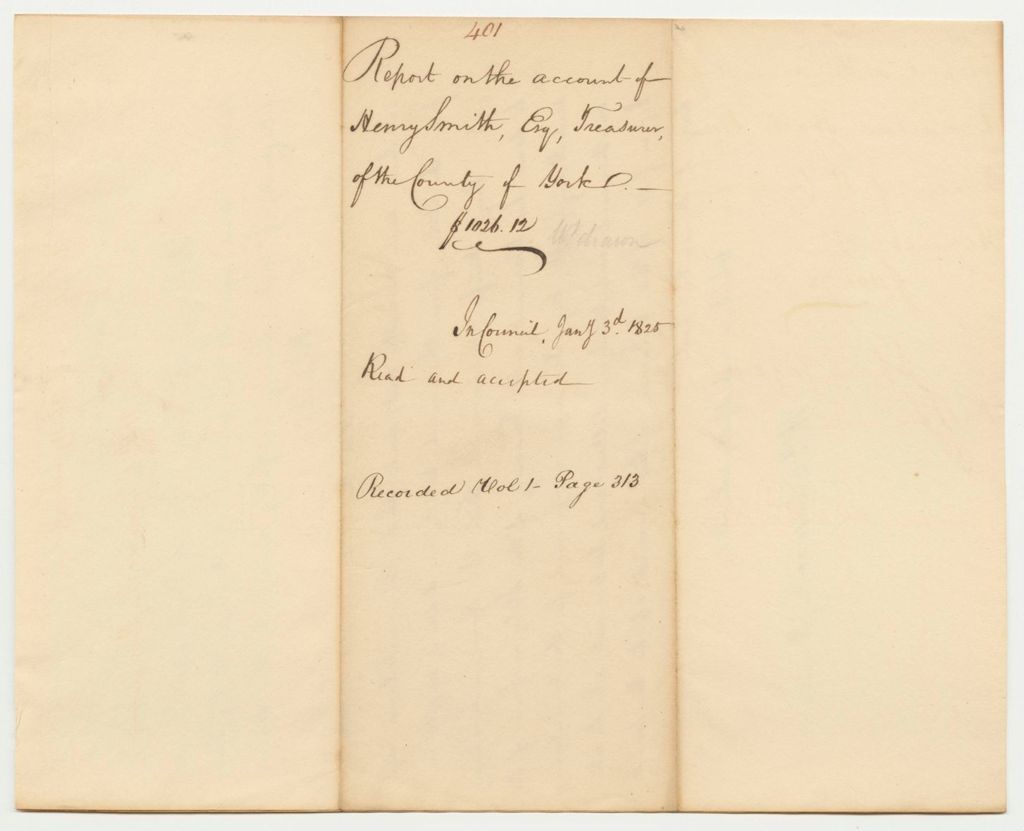 401
Report on the account of
Henry Smith, Esq, Treasurer,
of the County of York. —
$1026.12
Wt drawn
In Council, Jany 3d. 1825
Read and accepted
Recorded Vol 1 - Page 313